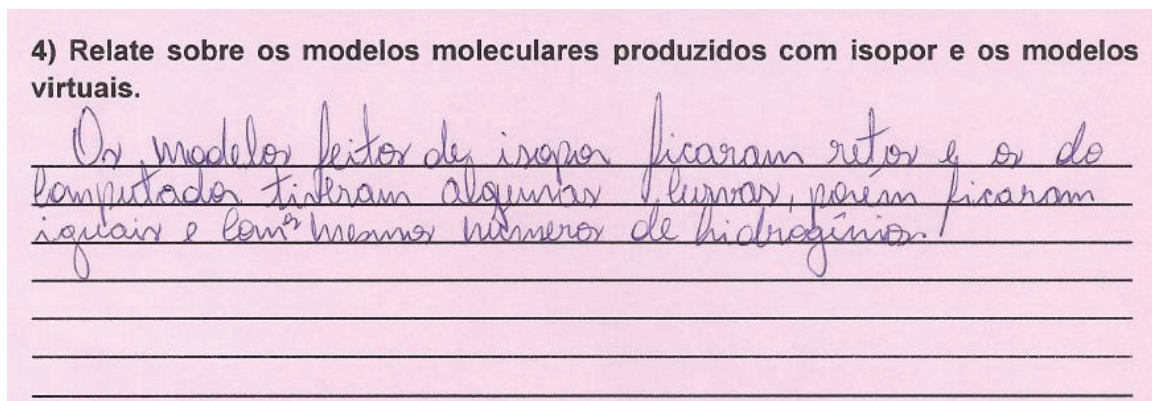 4) Relate sobre os modelos moleculares produzidos com isopor e os modelos
virtuais.
Os modelos feitos de isopor ficaram retos e os do
computador tiveram algumas curvas, porém ficaram
iguais e com os mesmos números de hidrogênios.